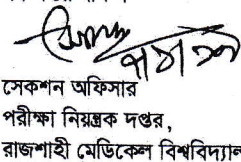 সেকশন অফিসার
পরীক্ষা নিয়ন্ত্রক দপ্তর,
রাজশাহী মেডিকেল বিশ্ববিদ্যাল